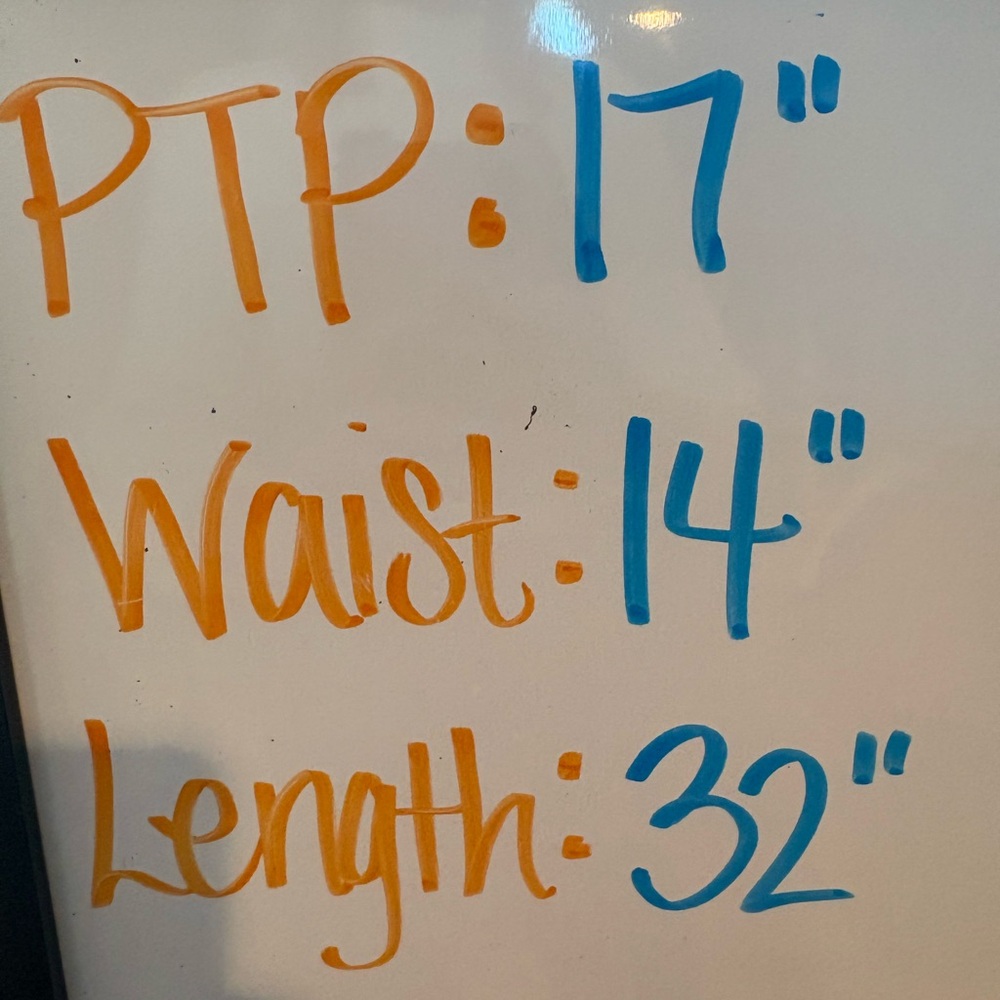 PTP: 17"
Waist: 14"
Length: 32"